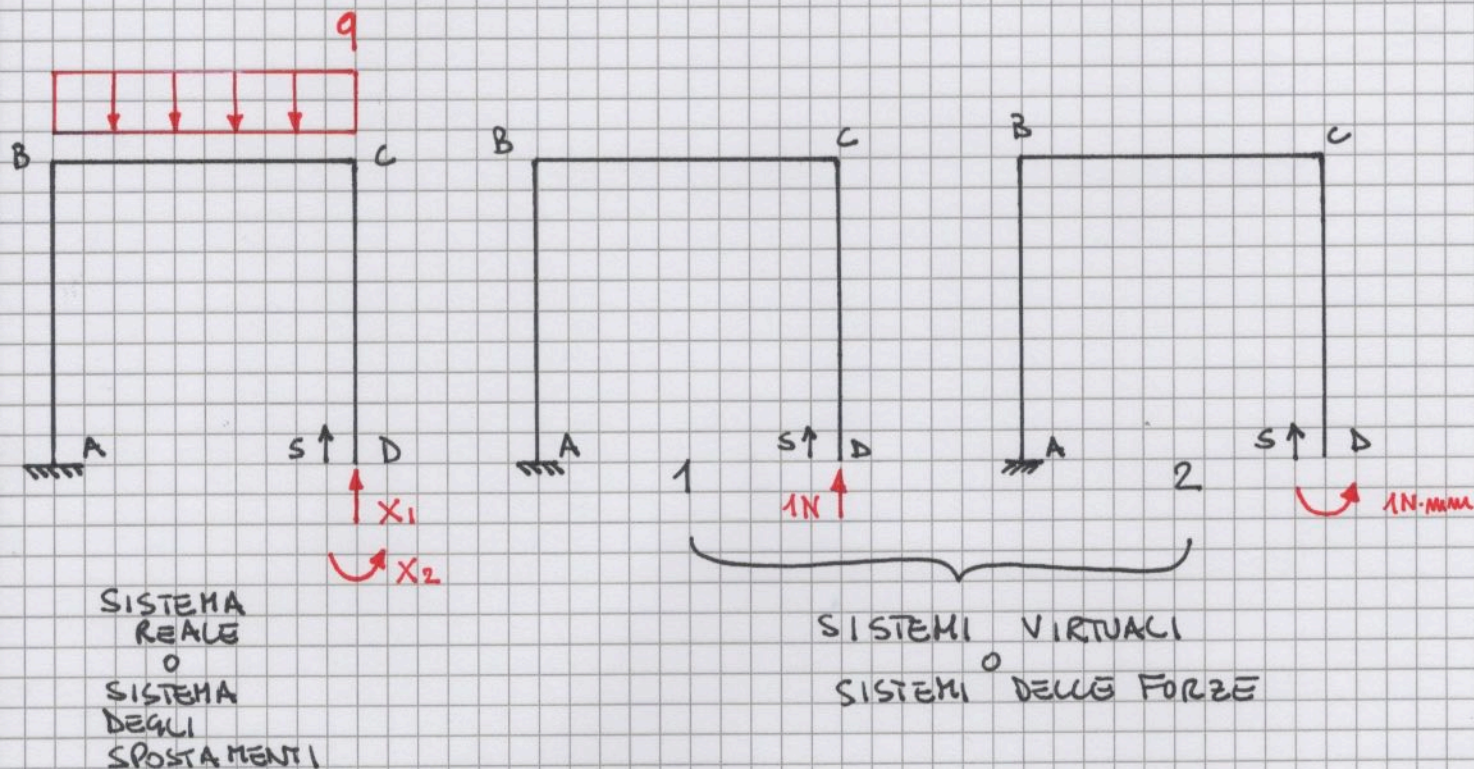 q
B
C
A
S
D
X1
X2
SISTEMA
REALE
O
SISTEMA
DEGLI
SPOSTAMENTI
B
C
A
1
S
D
1N
B
C
A
2
S
D
1N·mm
SISTEMI VIRTUALI
O
SISTEMI DELLE FORZE